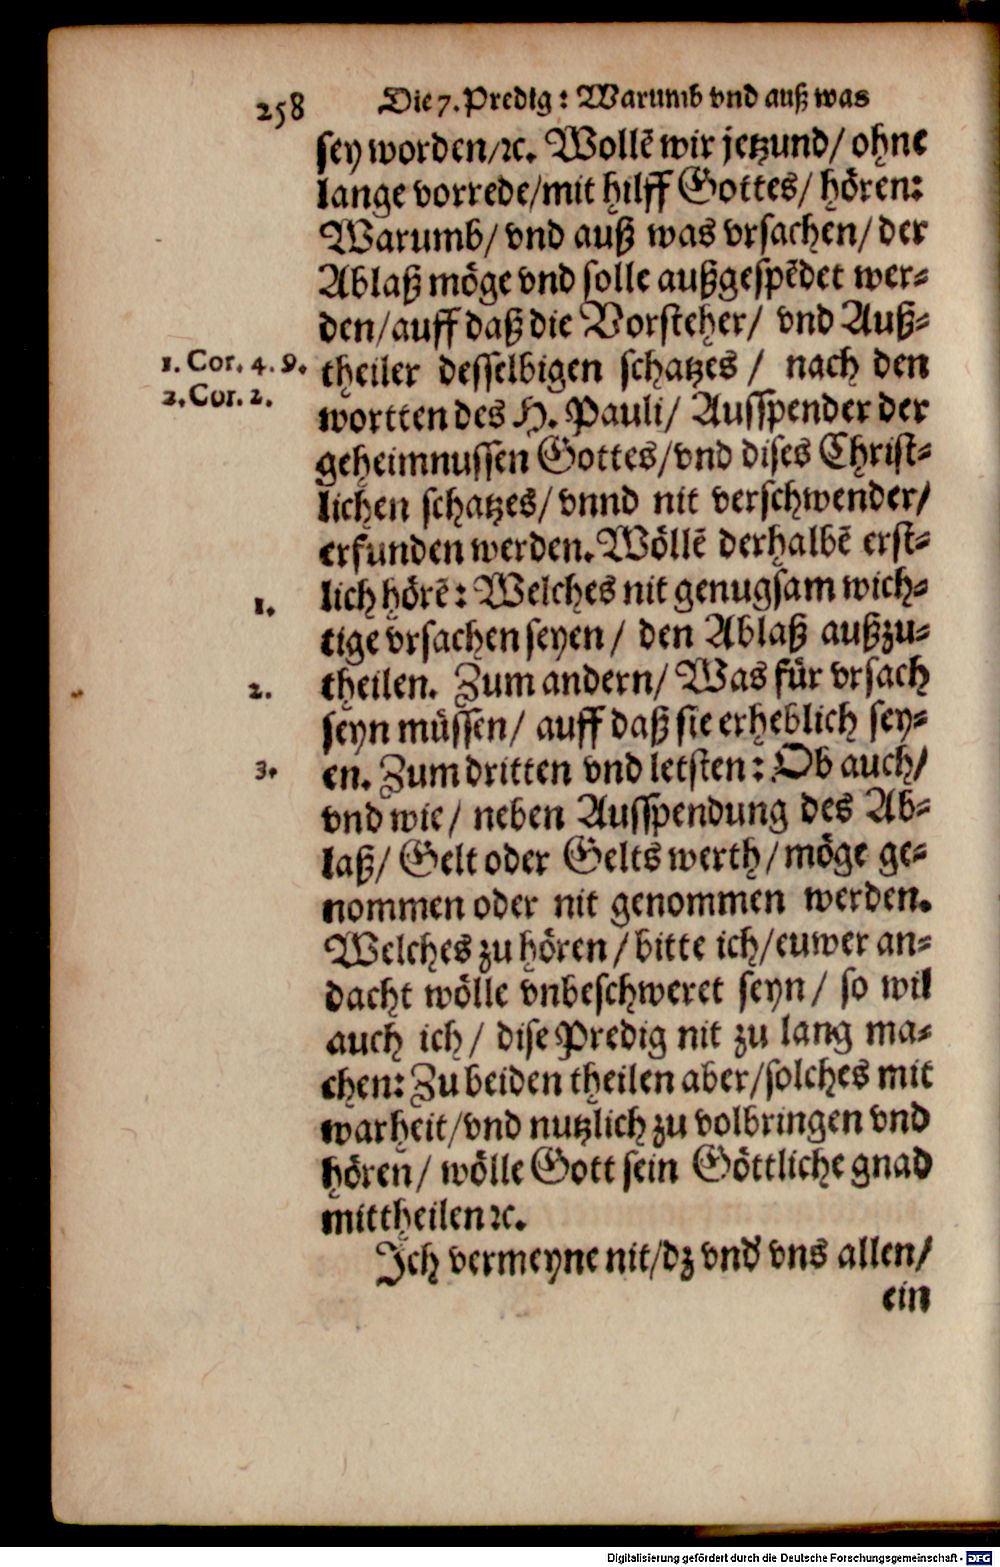 258 Die 7. Predig: Warumb vnd auß was
sey worden/ꝛc. Wollẽ wir jetzund/ ohne
lange vorrede/mit hilff Gottes/ hören:
Warumb/ vnd auß was vrsachen/ der
Ablaß möge vnd solle außgespẽdet wer⸗
den/auff daß die Vorsteher/ vnd Auß⸗
1. Cor. 4. 9. theiler desselbigen schatzes / nach den
2. Cor. 2. wortten des H. Pauli/ Ausspender der
geheimnussen Gottes/vnd dises Christ⸗
lichen schatzes/ vnnd nit verschwender/
erfunden werden. Wöllẽ derhalbẽ erst⸗
1. lich hörẽ: Welches nit genugsam wich⸗
tige vrsachen seyen / den Ablaß außzu⸗
2. theilen. Zum andern/ Was für vrsach
seyn müssen/ auff daß sie erheblich sey⸗
3. en. Zum dritten vnd letsten: Ob auch/
vnd wie/ neben Ausspendung des Ab⸗
laß/ Gelt oder Gelts werth/möge ge⸗
nommen oder nit genommen werden.
Welches zu hören /bitte ich/euwer an⸗
dacht wölle vnbeschweret seyn/ so wil
auch ich/ dise Predig nit zu lang ma⸗
chen: Zu beiden theilen aber/solches mit
warheit/vnd nutzlich zu volbringen vnd
hören/ wölle Gott sein Göttliche gnad
mittheilen ꝛc.
Ich vermeyne nit/dz vnd' vns allen/
ein
Digitalisierung gefördert durch die Deutsche Forschungsgemeinschaft - DFG